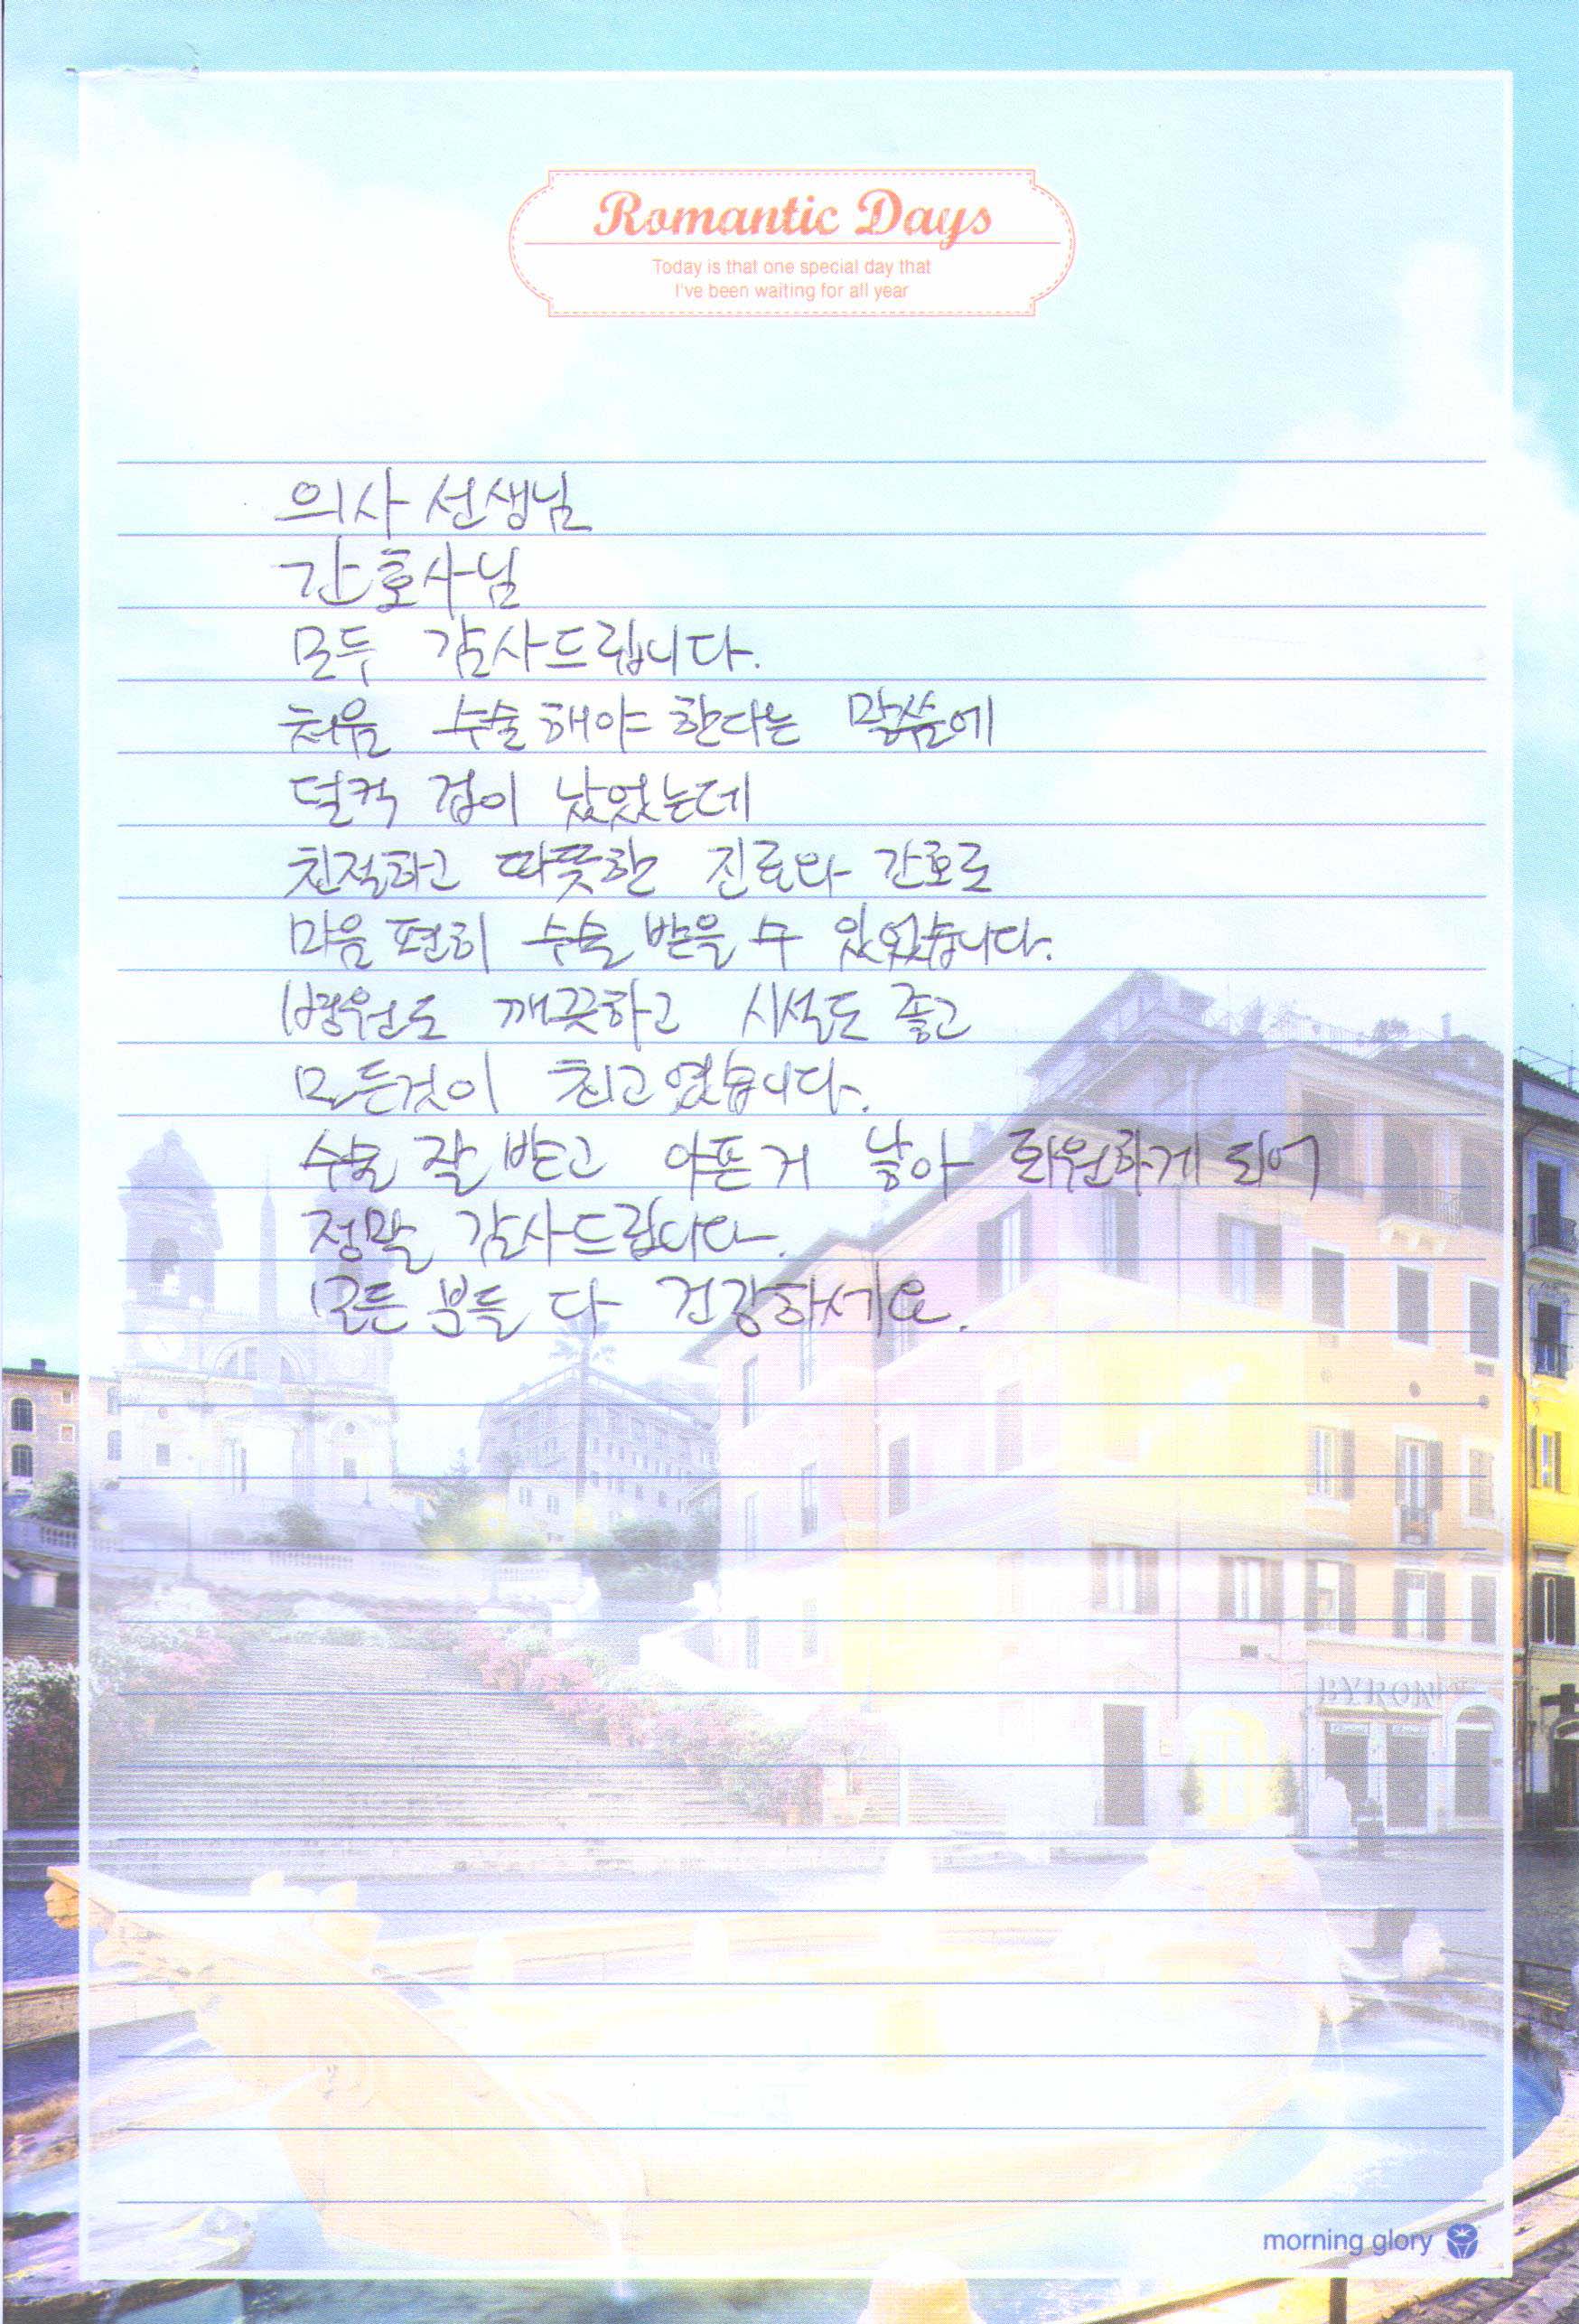 Romantic Days
Today is that one special day that
I've been waiting for all year
의사 선생님
간호사님
모두 감사드립니다.
처음 수술해야 한다는 말씀에
덜컥 겁이 났었는데
친절하고 따뜻한 진료와 간호로
마음 편히 수술 받을 수 있었습니다.
병원도 깨끗하고 시설도 좋고
모든것이 최고였습니다.
수술 잘 받고 아픈거 낳아 퇴원하게 되어
정말 감사드립니다.
모든 분들 다 건강하세요.
BYRON
morning glory